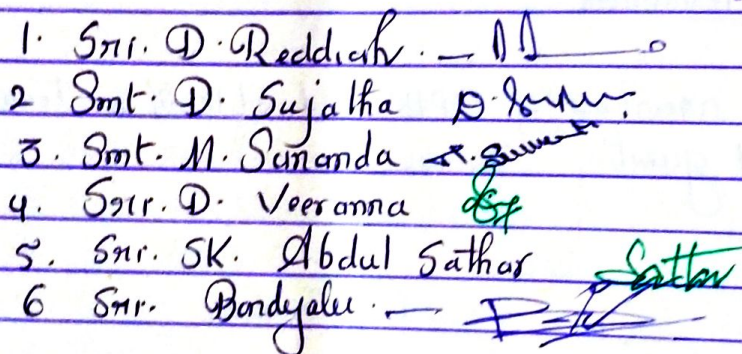 1. Sri. D. Reddiah. —
2 Smt. D. Sujatha D.
3. Smt. M. Sunanda
4. Sri. D. Veeranna
5. Sri. SK. Abdul Sathar Sattar
6 Sri. Bandyalu. —